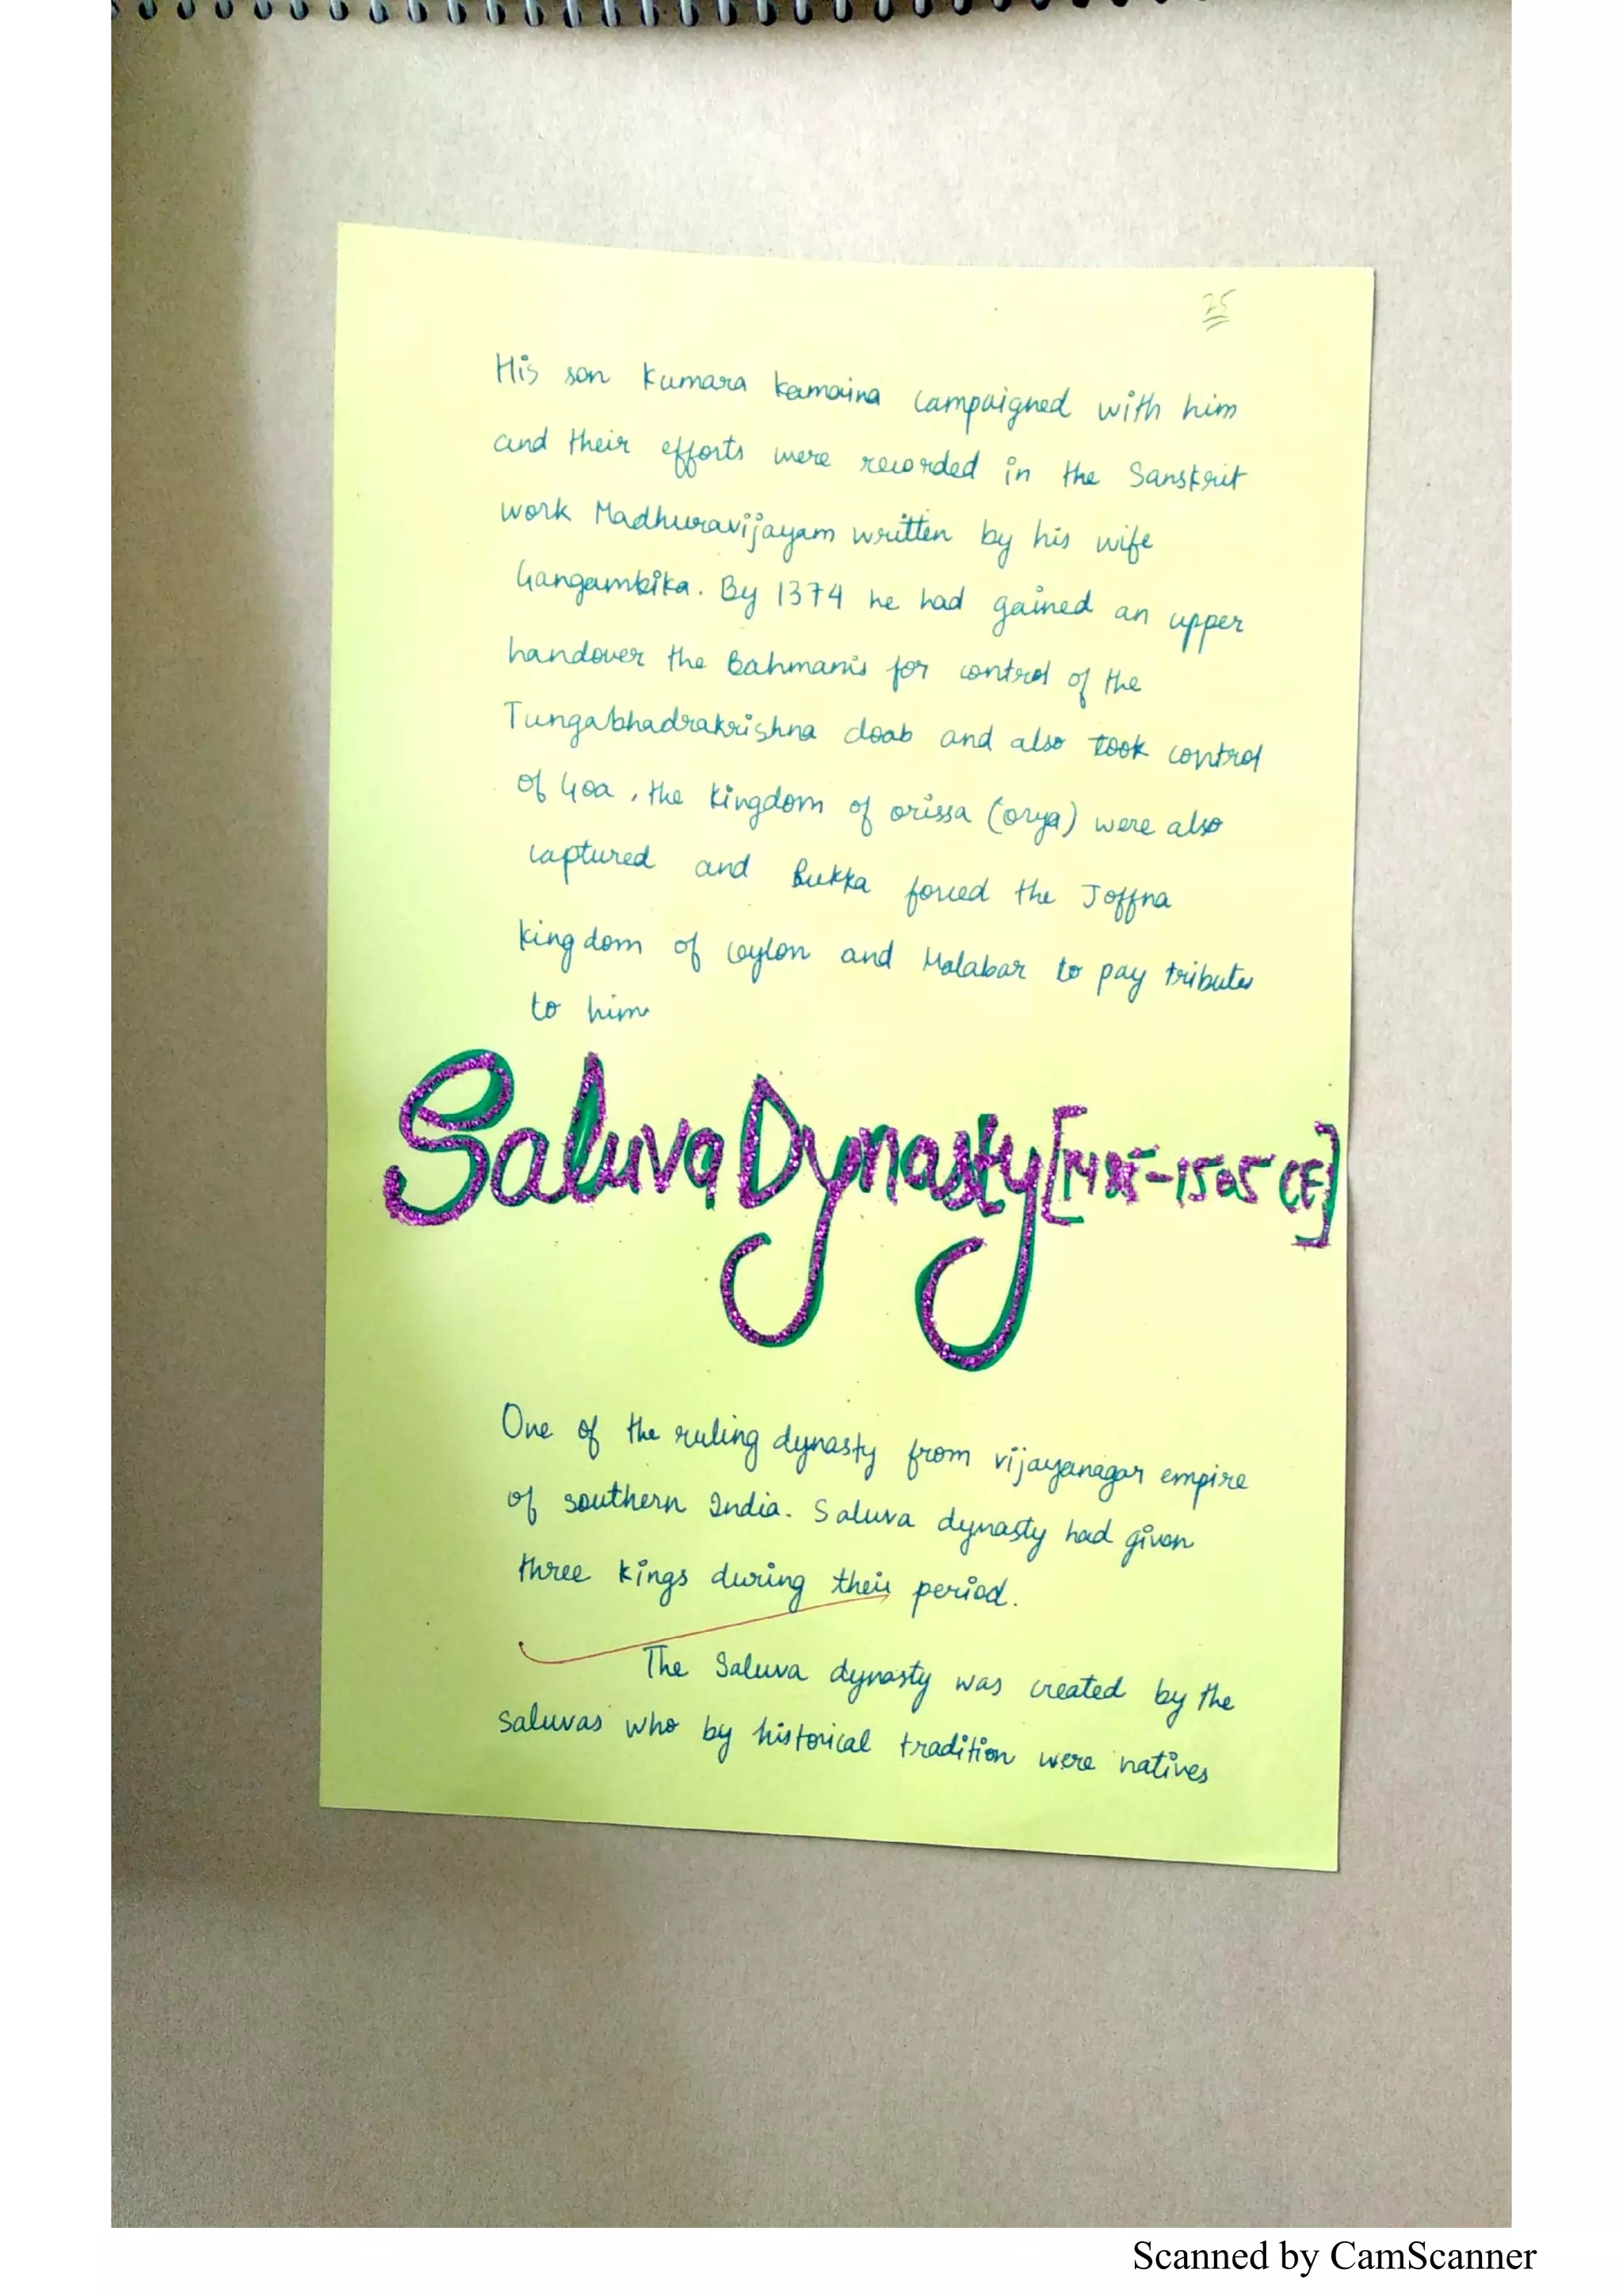 25
His son Kumara Kamaina campaigned with him
and their efforts were recorded in the Sanskrit
work Madhuravijayam written by his wife
Gangambika. By 1374 he had gained an upper
handover the Bahmanis for control of the
Tungabhadrakrishna doab and also took control
of Goa, the kingdom of orissa (orya) were also
captured and Bukka forced the Joffna
kingdom of ceylon and Malabar to pay tributes
to him
Saluva Dynasty [1485-1505 CE]
One of the ruling dynasty from vijayanagar empire
of southern India. Saluva dynasty had given
three kings during their period.
The Saluva dynasty was created by the
saluvas who by historical tradition were natives
Scanned by CamScanner